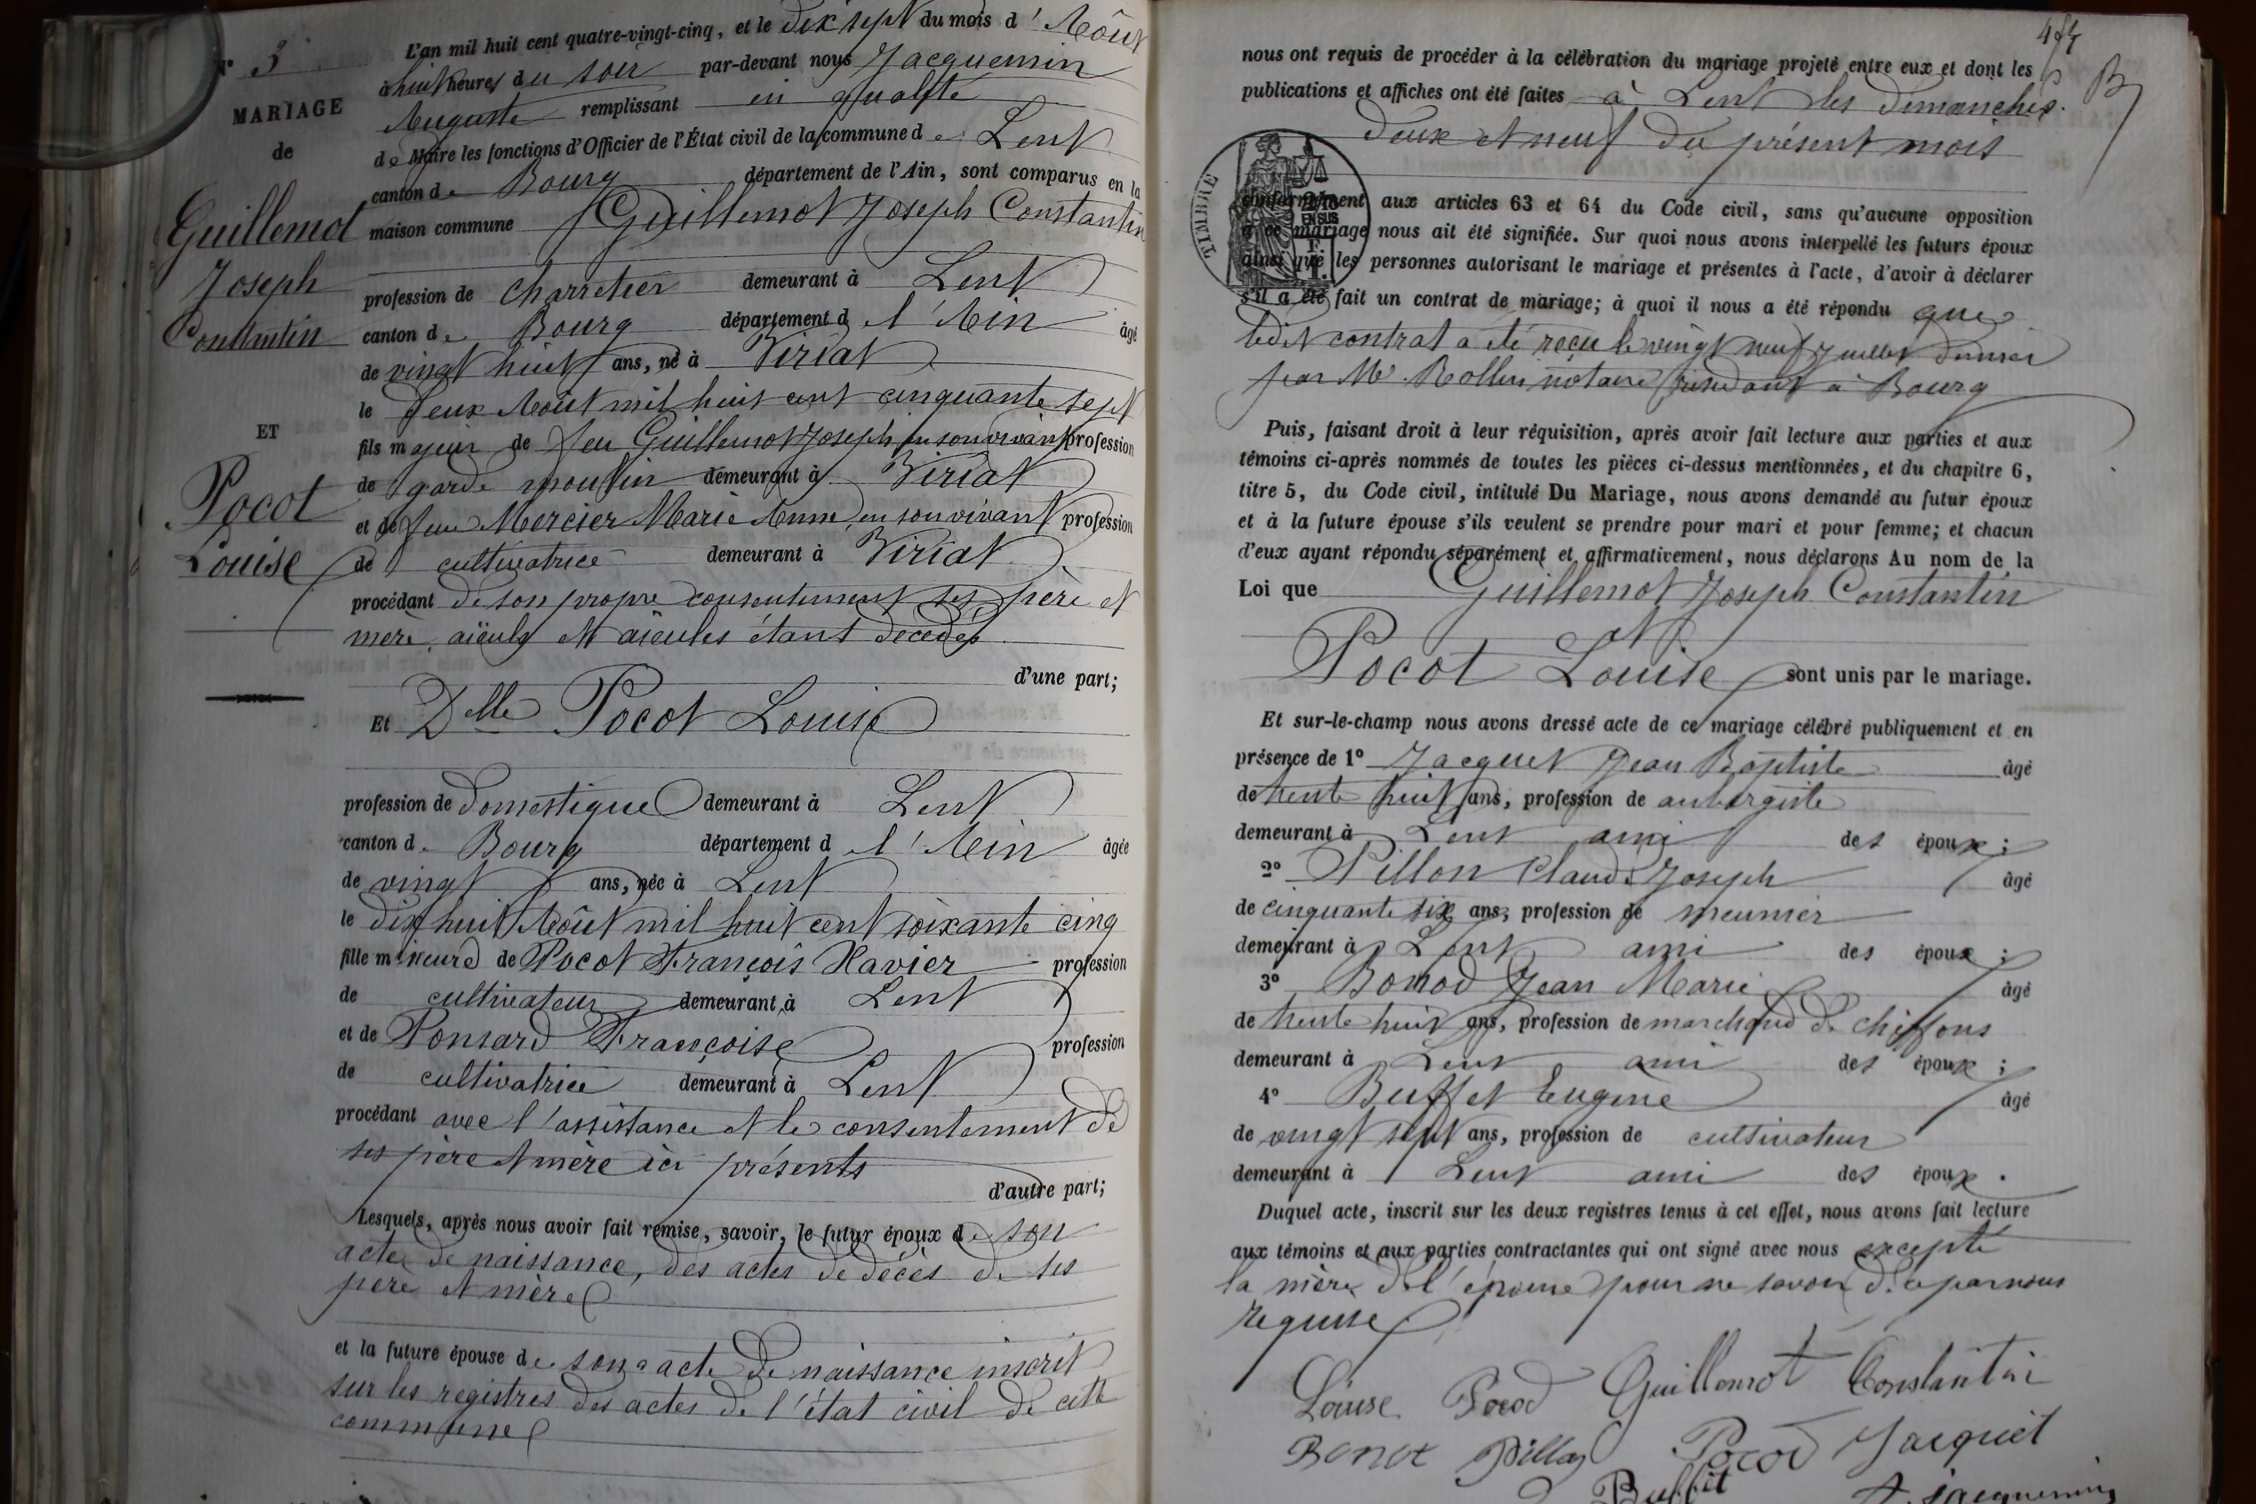 N° 3
MARIAGE
de
Guillemot
Joseph
Constantin
ET
Pocot
Louise
L'an mil huit cent quatre-vingt-cinq, et le dix sept du mois d'Août
à huit heures du soir par-devant nous Jacquemin
Auguste remplissant en qualité
de Maire les fonctions d'Officier de l'État civil de la commune de Lent
canton de Bourg département de l'Ain, sont comparus en la
maison commune Guillemot Joseph Constantin
profession de charretier demeurant à Lent
canton de Bourg département d l'Ain âgé
de vingt huit ans, né à Viriat
le deux Août mil huit cent cinquante sept
fils majeur de feu Guillemot Joseph en son vivant profession
de garde moulin demeurant à Viriat
et de feue Mercier Marie Anne, en son vivant profession
de cultivatrice demeurant à Viriat
procédant de son propre consentement ses père et
mère, aïeuls et aïeules étant décédés
d'une part;
Et Delle Pocot Louise
profession de domestique demeurant à Lent
canton de Bourg département d l'Ain âgée
de vingt ans, née à Lent
le dix huit Août mil huit cent soixante cinq
fille mineure de Pocot François Xavier profession
de cultivateur demeurant à Lent
et de Ponsard Françoise profession
de cultivatrice demeurant à Lent
procédant avec l'assistance et le consentement de
ses père et mère ici présents
d'autre part;
Lesquels, après nous avoir fait remise, savoir, le futur époux de son
acte de naissance, des actes de décès de ses
père et mère
et la future épouse de son acte de naissance inscrit
sur les registres des actes de l'état civil de cette
commune
nous ont requis de procéder à la célébration du mariage projeté entre eux et dont les
publications et affiches ont été faites à Lent les dimanches
deux et neuf du présent mois
TIMBRE
2/10
EN SUS
conformément aux articles 63 et 64 du Code civil, sans qu'aucune opposition
à ce mariage nous ait été signifiée. Sur quoi nous avons interpellé les futurs époux
ainsi que les personnes autorisant le mariage et présentes à l'acte, d'avoir à déclarer
s'il a été fait un contrat de mariage; à quoi il nous a été répondu que
ledit contrat a été reçu le vingt neuf juillet dernier
par Me Rollin notaire résidant à Bourg
Puis, faisant droit à leur réquisition, après avoir fait lecture aux parties et aux
témoins ci-après nommés de toutes les pièces ci-dessus mentionnées, et du chapitre 6,
titre 5, du Code civil, intitulé Du Mariage, nous avons demandé au futur époux
et à la future épouse s'ils veulent se prendre pour mari et pour femme; et chacun
d'eux ayant répondu séparément et affirmativement, nous déclarons Au nom de la
Loi que Guillemot Joseph Constantin
et
Pocot Louise sont unis par le mariage.
Et sur-le-champ nous avons dressé acte de ce mariage célébré publiquement et en
présence de 1° Jacquet Jean Baptiste âgé
de trente huit ans, profession de aubergiste
demeurant à Lent ami des époux;
2° Pillon Claude Joseph âgé
de cinquante six ans, profession de meunier
demeurant à Lent ami des époux;
3° Bonod Jean Marie âgé
de trente huit ans, profession de marchand de chiffons
demeurant à Lent ami des époux;
4° Buffet Eugène âgé
de vingt sept ans, profession de cultivateur
demeurant à Lent ami des époux.
Duquel acte, inscrit sur les deux registres tenus à cet effet, nous avons fait lecture
aux témoins et aux parties contractantes qui ont signé avec nous excepté
la mère de l'épouse pour ne savoir de ce par nous
requise
Louise Pocod Guillemot Constantin
Bonot Pillon Pocod Jacquet
Buffet A. Jacquemin